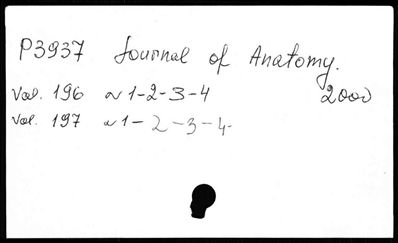 P3937 Journal of Anatomy.
Vol. 196 ~ 1-2-3-4 2000
Vol. 197 ~ 1-2-3-4-